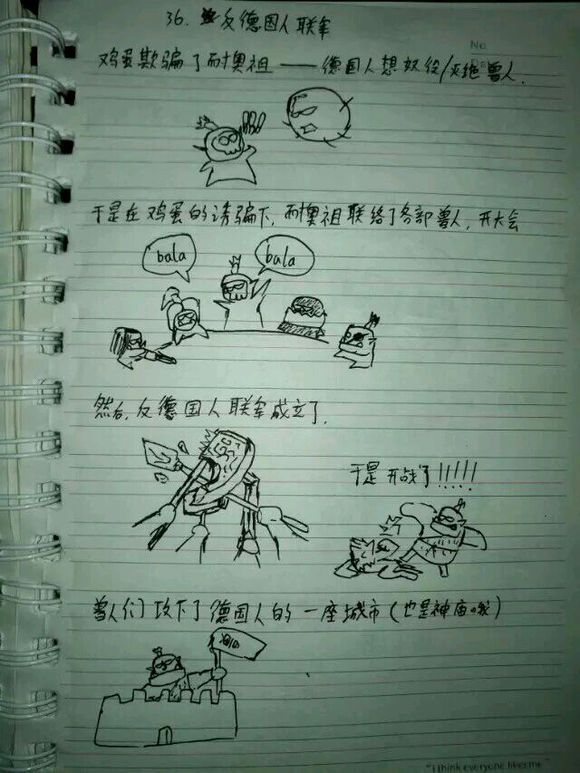 36. 反德国人联军
No
鸡蛋欺骗了耐奥祖——德国人想奴役/灭绝兽人.
于是在鸡蛋的诱骗下,耐奥祖联络了各部兽人,开大会
bala
bala
然后,反德国人联军成立了.
于是开战了!!!!!
兽人们攻下了德国人的一座城市(也是神庙哦)
"I think everyone likes me"